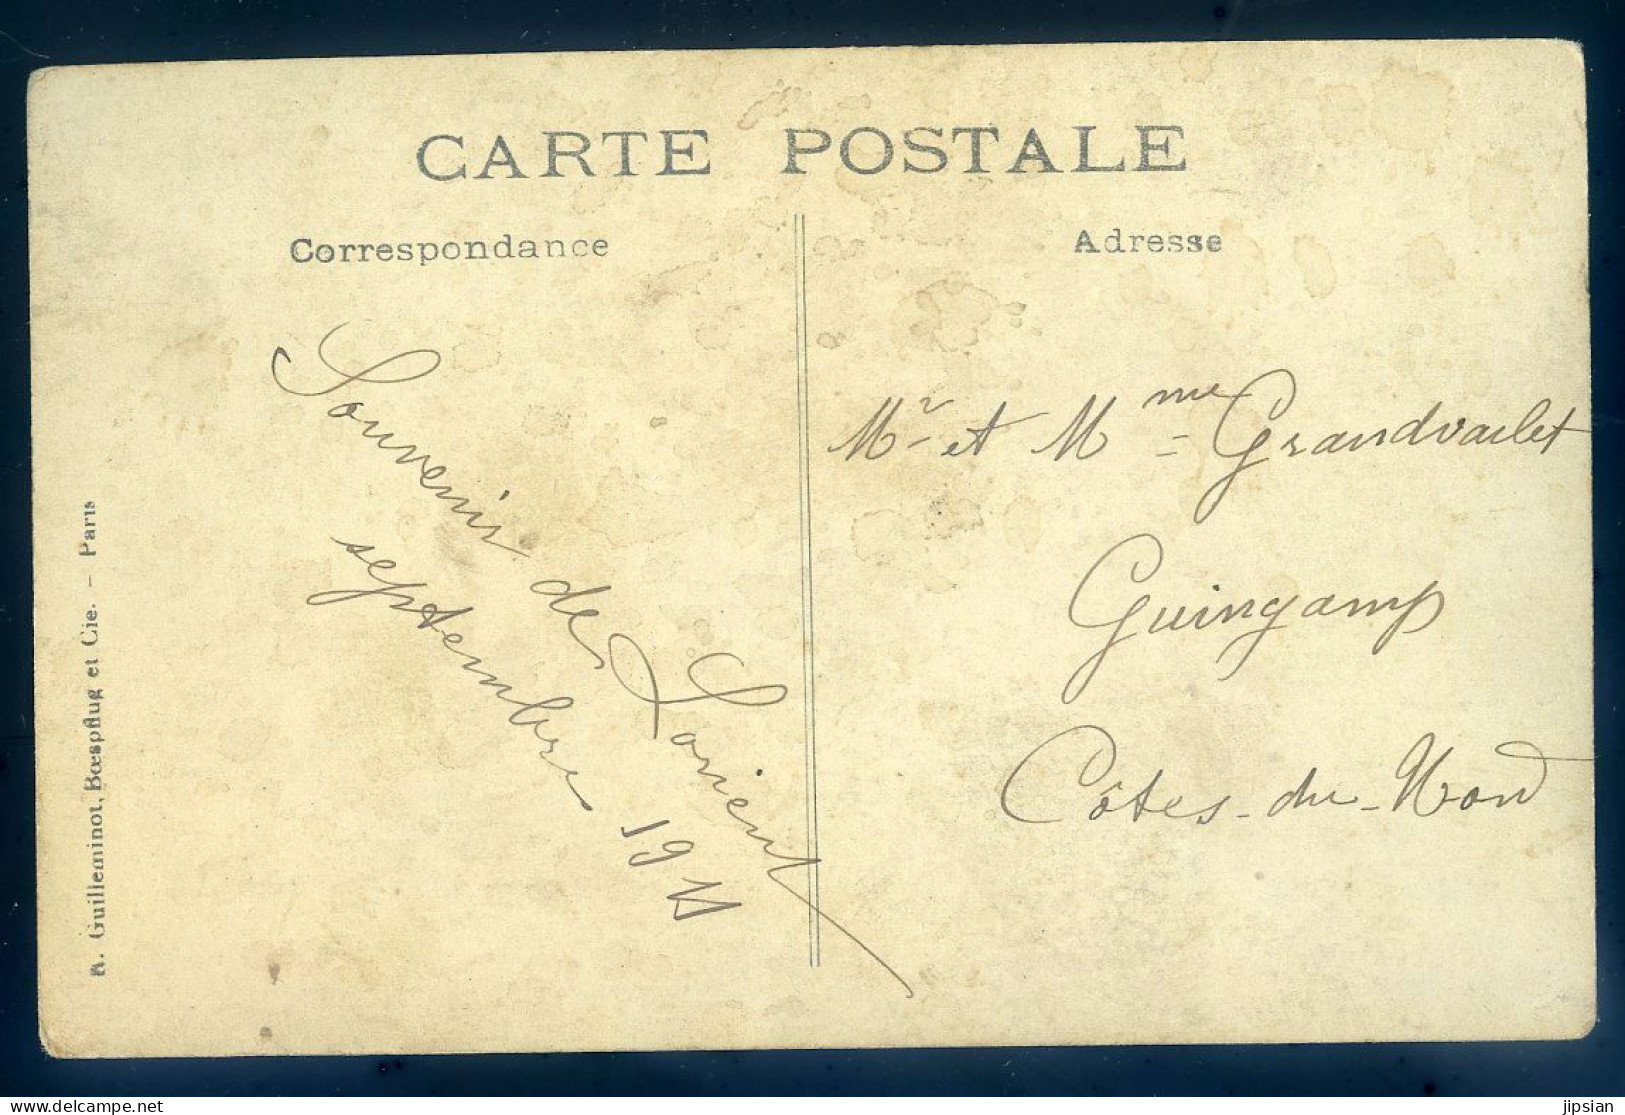 CARTE POSTALE
Correspondance
Adresse
Souvenir de Lorient
septembre 1911
Mr et Mme Grandvarlet
Guingamp
Côtes-du-Nord
R. Guilleminot, Bœspflug et Cie. - Paris
delcampe.net
jipsian